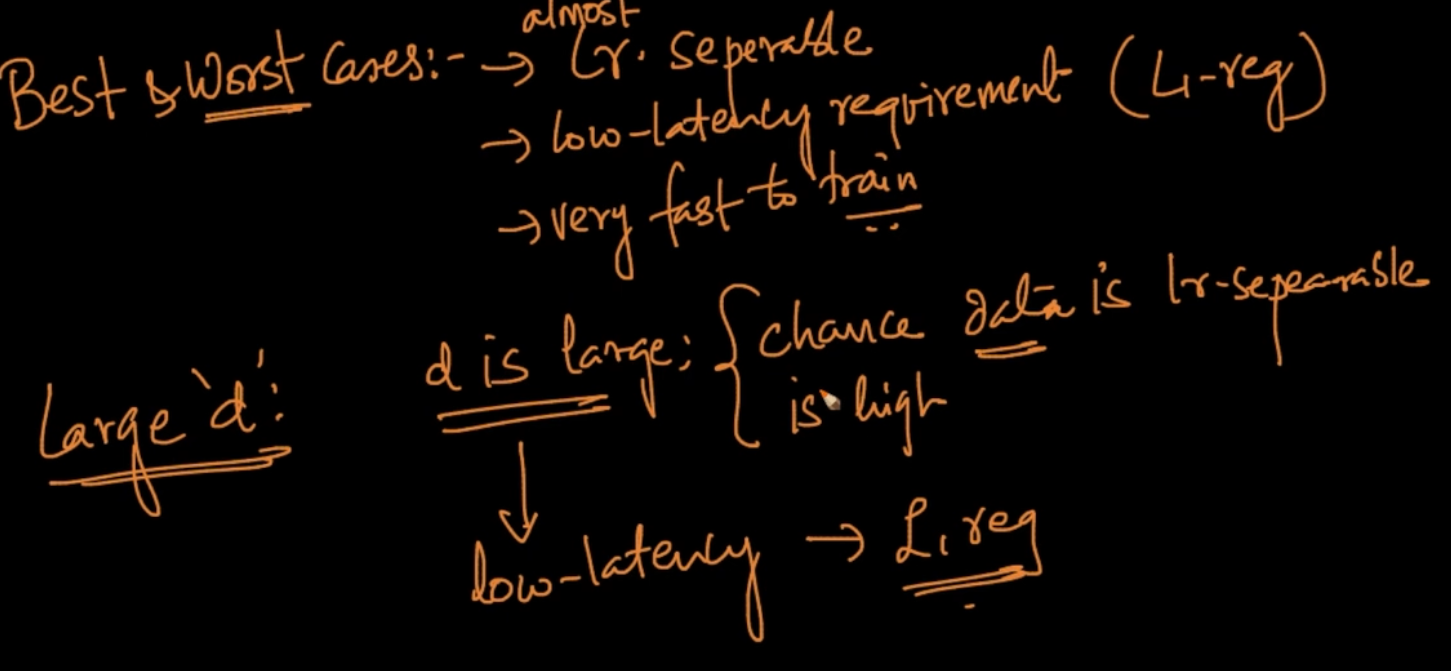 almost
Best & Worst Cases:- → Lr. seperable
→ low-latency requirement (L1-reg)
→ very fast to train
Large 'd': d is large; { chance data is lr-sepearable
is high
↓
low-latency → L1 reg